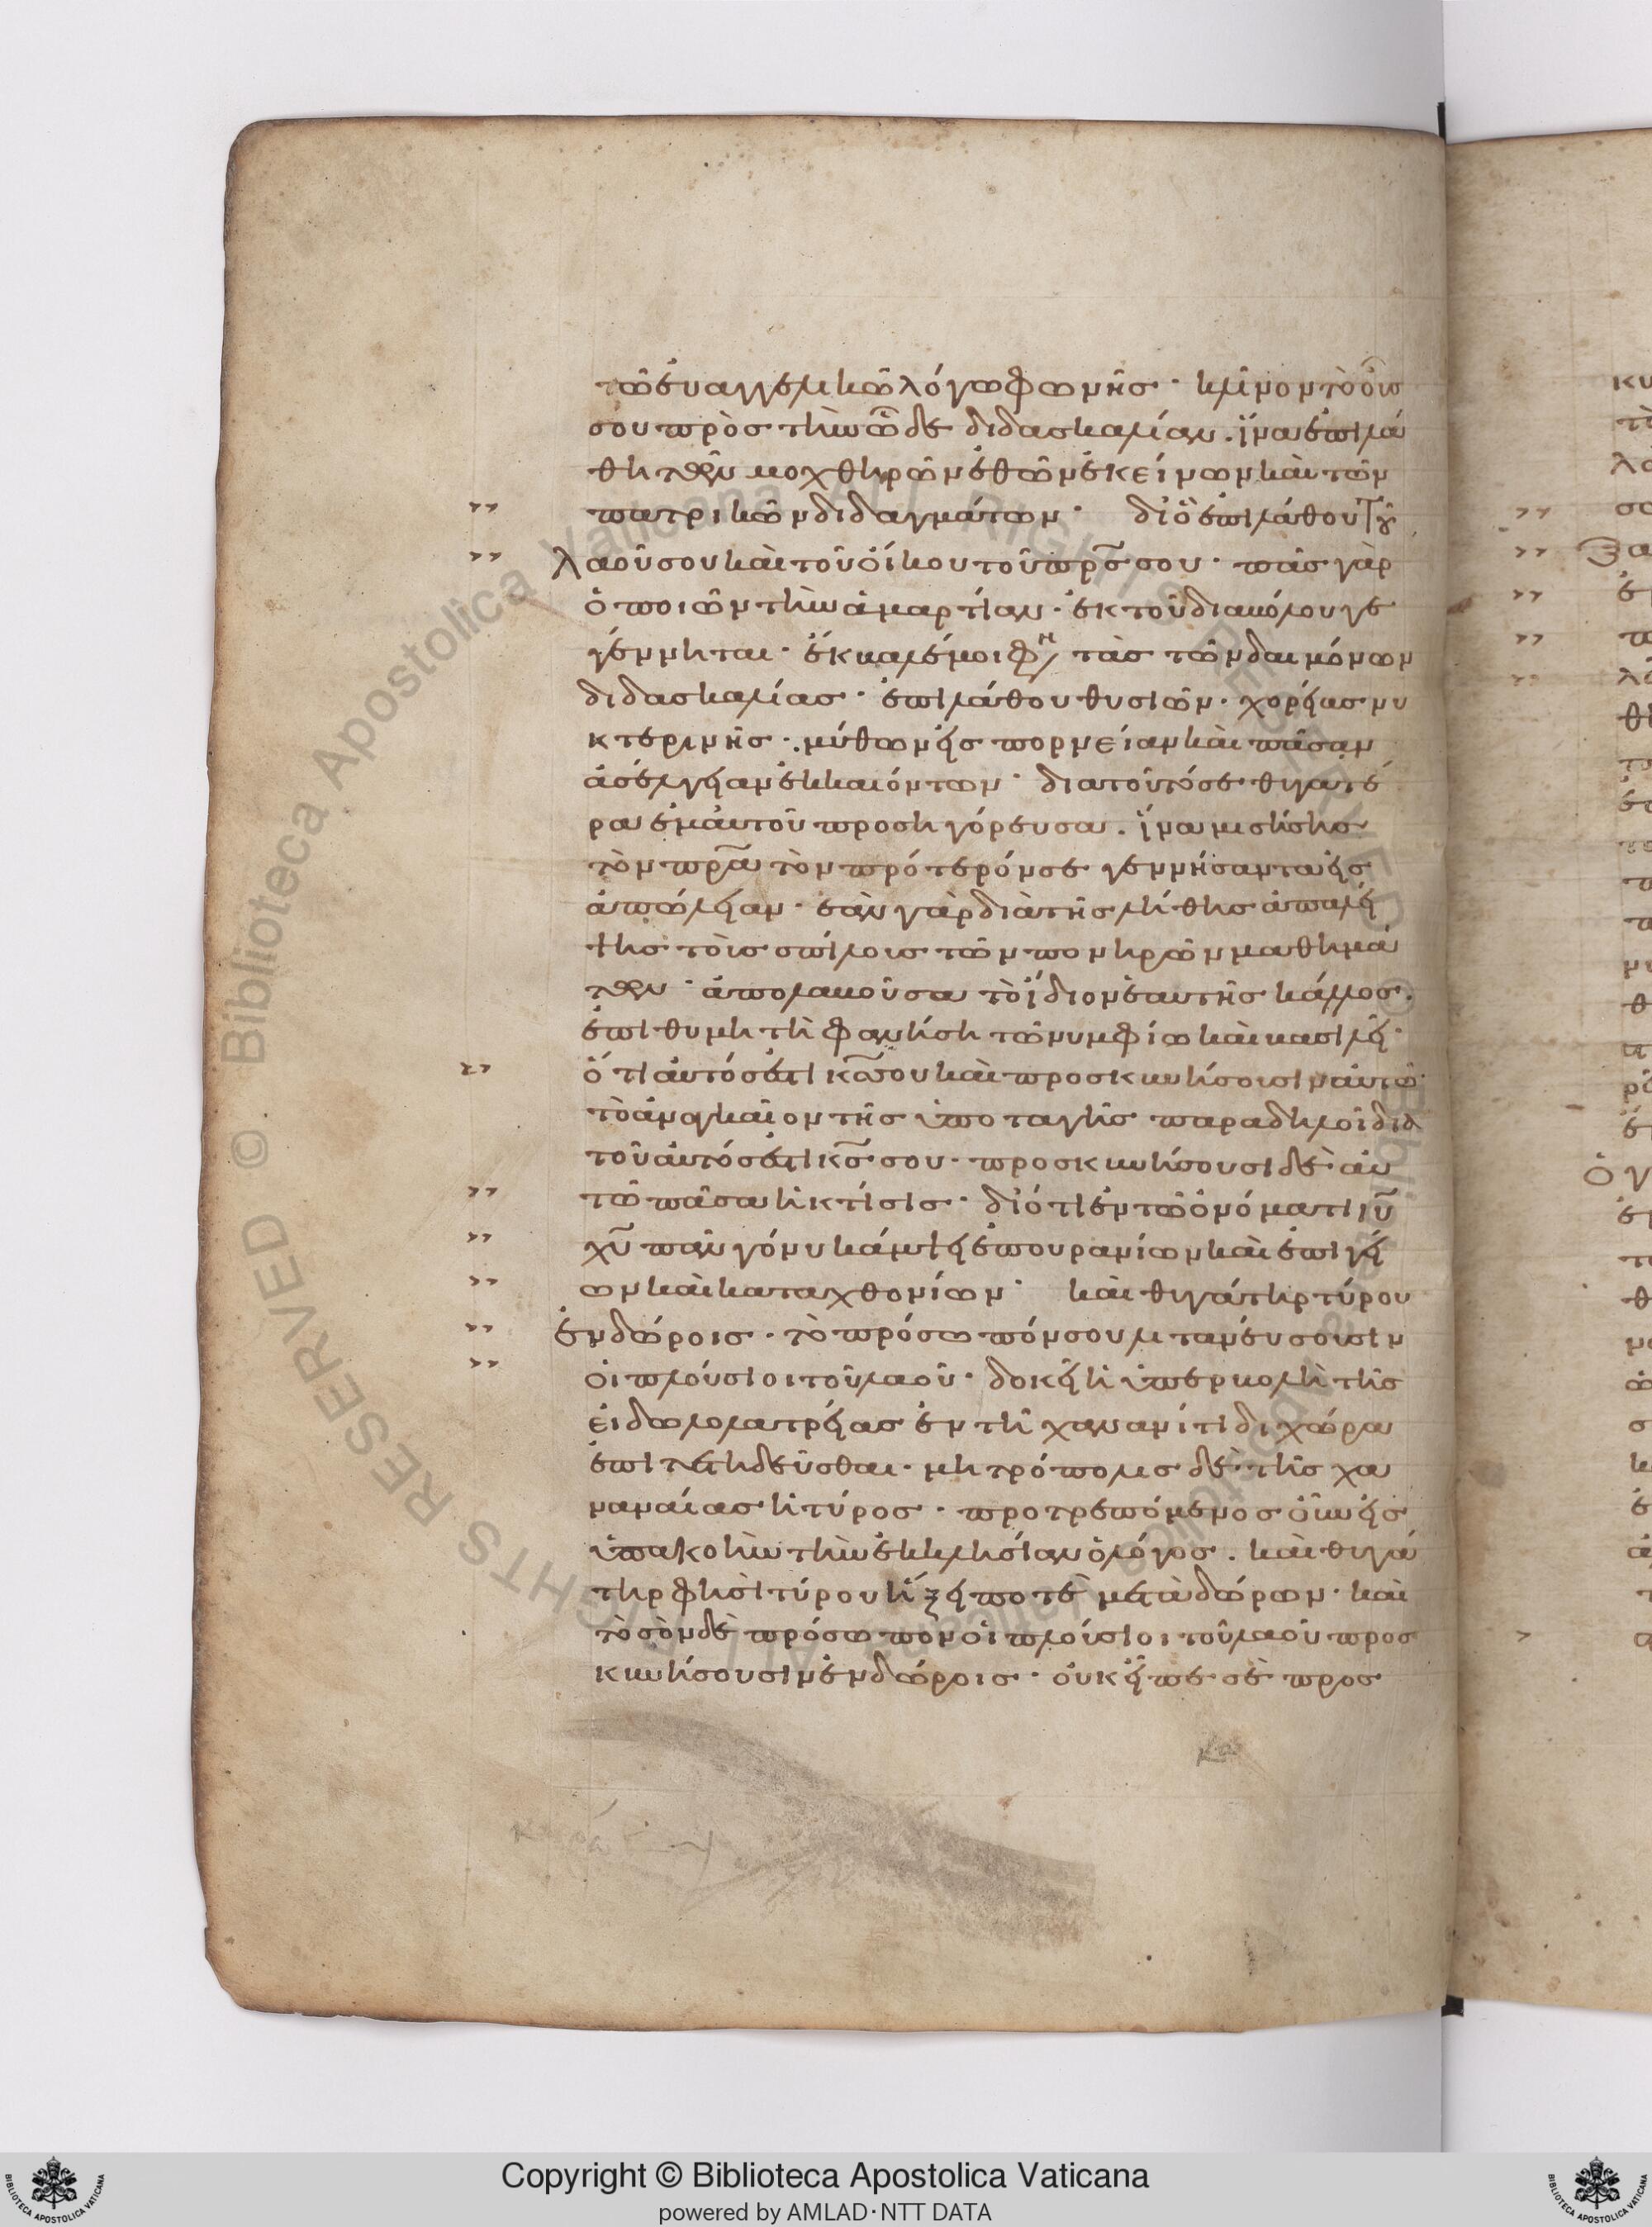 τῶ εὐαγγελικῶ λόγω φωνῆσ · κλῖνον τὸ οὖσ
σου πρὸσ τὴν ὧδε διδασκαλίαν . ἵνα ἐπιλά
θη τῶν μοχθηρῶν ἐθῶν ἐκείνων καὶ τῶν
πατρικῶν διδαγμάτων · διὸ ἐπιλάθου τοῦ
λαοῦ σου καὶ τοῦ οἴκου τοῦ πρσ σου · πᾶσ γὰρ
ὁ ποιῶν τὴν ἁμαρτίαν · ἐκ τοῦ διαβόλου γε
γέννηται · ἔκβαλέ μοι φη τὰσ τῶν δαιμόνων
διδασκαλίασ · ἐπιλάθου θυσιῶν · χορείασ νυ
κτερινῆσ · μύθων εἰσ πορνείαν καὶ πᾶσαν
ἀσέλγειαν ἐκκαιόντων · διατοῦτό σε θυγατέ
ρα ἐμαυτοῦ προσηγόρευσα . ἵνα μισήσησ
τὸν πρα τὸν πρότερόν σε γεννήσαντα εἰσ
ἀπώλειαν · ἐὰν γὰρ διὰ τῆσ λήθησ ἀπαλεί
ψησ τοῖσ σπίλοισ τῶν πονηρῶν μαθημά
των · ἀπολαβοῦσα τὸ ἴδιον ἑαυτῆσ κάλλοσ .
ἐπιθυμητὴ φανήση τῶ νυμφίω καὶ βασιλεῖ ·
ὅτι αὐτόσ ἐστι κσ σου καὶ προσκυνήσουσιν αὐτῶ ·
τὸ ἀναγκαῖον τῆσ ὑποταγῆσ παραδηλοῖ διὰ
τοῦ αὐτόσ ἐστι κσ σου · προσκυνήσουσι δὲ αὐ
τῶ πᾶσα ἡ κτίσισ · διότι ἐν τῶ ὀνόματι ιυ
χυ πᾶν γόνυ κάμψει ἐπουρανίων καὶ ἐπιγεί
ων καὶ καταχθονίων · καὶ θυγάτηρ τύρου
ἐν δώροισ · τὸ πρόσωπόν σου λιτανεύσουσιν
οἱ πλούσιοι τοῦ λαοῦ · δοκεῖ ἡ ὑπερβολὴ τῆσ
εἰδωλολατρείασ ἐν τῆ χανανίτιδι χώρα
ἐπιτετηδεῦσθαι · μητρόπολισ δὲ τῆσ χα
ναναίασ ἡ τύροσ · προτρεπόμενοσ οὖν εἰσ
ὑπακοὴν τὴν ἐκκλησίαν ὁ λόγοσ . καὶ θυγά
τηρ φησὶ τύρου ἥξει ποτὲ μετὰ δώρων · καὶ
τὸ σὸν δὲ πρόσωπον οἱ πλούσιοι τοῦ λαοῦ προσ
κυνήσουσιν ἐν δώροισ · οὐκ εἶπε σὲ προσ